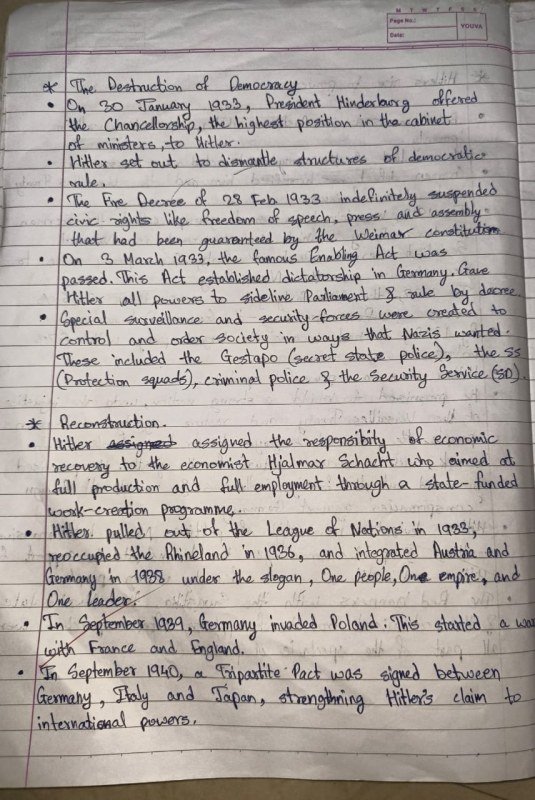 M T W T F S S
Page No.:
YOUVA
Date:
* The Destruction of Democracy
• On 30 January 1933, President Hinderburg offered
the Chancellorship, the highest position in the cabinet
of ministers, to Hitler.
• Hitler set out to dismantle structures of democratic
rule.
• The Fire Decree of 28 Feb 1933 indefinitely suspended
civic rights like freedom of speech, press and assembly
that had been guaranteed by the Weimar constitution
• On 3 March 1933, the famous Enabling Act was
passed. This Act established dictatorship in Germany. Gave
Hitler all powers to sideline Parliament & rule by decree.
• Special surveillance and security forces were created to
control and order society in ways that Nazis wanted.
These included the Gestapo (secret state police), the SS
(Protection squads), criminal police & the Security Service (SD).
* Reconstruction.
• Hitler assigned assigned the responsibity of economic
recovery to the economist Hjalmar Schacht who aimed at
full production and full employment through a state-funded
work-creation programme.
• Hitler pulled out of the League of Nations in 1933,
reoccupied the Rhineland in 1936, and integrated Austria and
Germany in 1938 under the slogan, One people, One empire, and
One leader.
• In September 1939, Germany invaded Poland. This started a war
with France and England.
• In September 1940, a Tripartite Pact was signed between
Germany, Italy and Japan, strengthning Hitler's claim to
international powers.